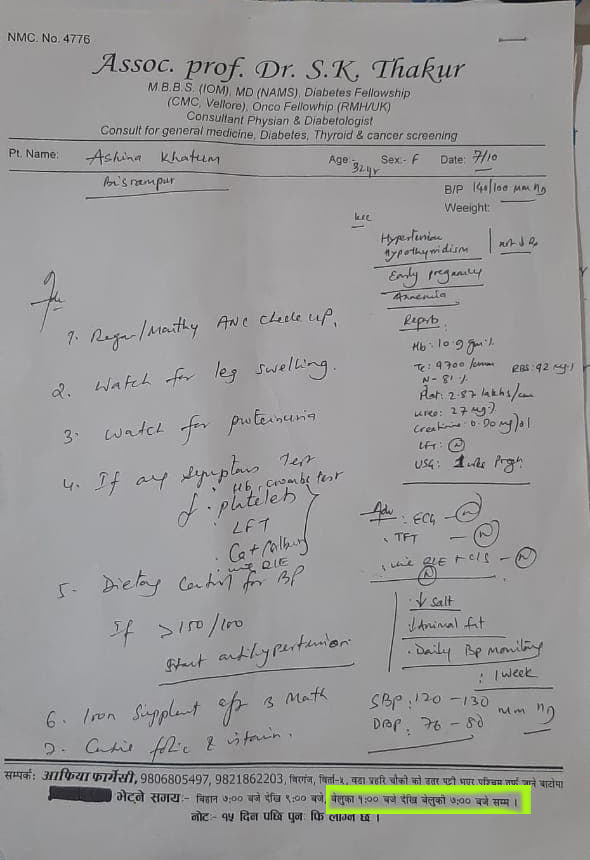 NMC. No. 4776
Assoc. prof. Dr. S.K. Thakur
M.B.B.S. (IOM), MD (NAMS), Diabetes Fellowship
(CMC, Vellore), Onco Fellowhip (RMH/UK)
Consultant Physian & Diabetologist
Consult for general medicine, Diabetes, Thyroid & cancer screening
Pt. Name: Ashina Khatun Age:- 32yr Sex:- F Date: 7/10
Bisrampur
B/P 140/100 mm Hg
Weeight:
Hypertension
Hypothyroidism
Early pregnancy
Anaemia
Reprts
Hb: 10.9 gm%
Tc: 9700 /cumm RBS: 92 mg%
N- 81%
Plat: 2.87 lakhs/cum
urea: 27 mg%
Creatinine: 0.90 mg/dl
LFT: N
USG:
1. Regar/Monthy ANC check up,
2. Watch for leg swelling.
3. Watch for proteinuria
4. If any Symptoms Test
Hb,
platelets
LFT
urine R/E
Adv: ECG - N
TFT - N
urine R/E + C/S - N
5. Dietary Control for BP
If >150/100
Start antihypertension
↓ Salt
↓ Animal fat
Daily Bp monitoring
: 1 week
SBP: 120 - 130 mm Hg
DBP: 76 - 80
6. Iron Supplent aftr 3 Month
7. folic & vitamin.
सम्पर्क: आफिया फार्मेसी, 9806805497, 9821862203, बिरगंज, चोकी को उतर पट्टी भएर पश्चिम जाने बाटोमा
भेट्ने समय:- बिहान ७:०० बजे देखि ९:०० बजे, बेलुका १:०० बजे देखि बेलुकी ७:०० बजे सम्म ।
नोट:- १५ दिन पछि पुनः फि लाग्ने छ ।